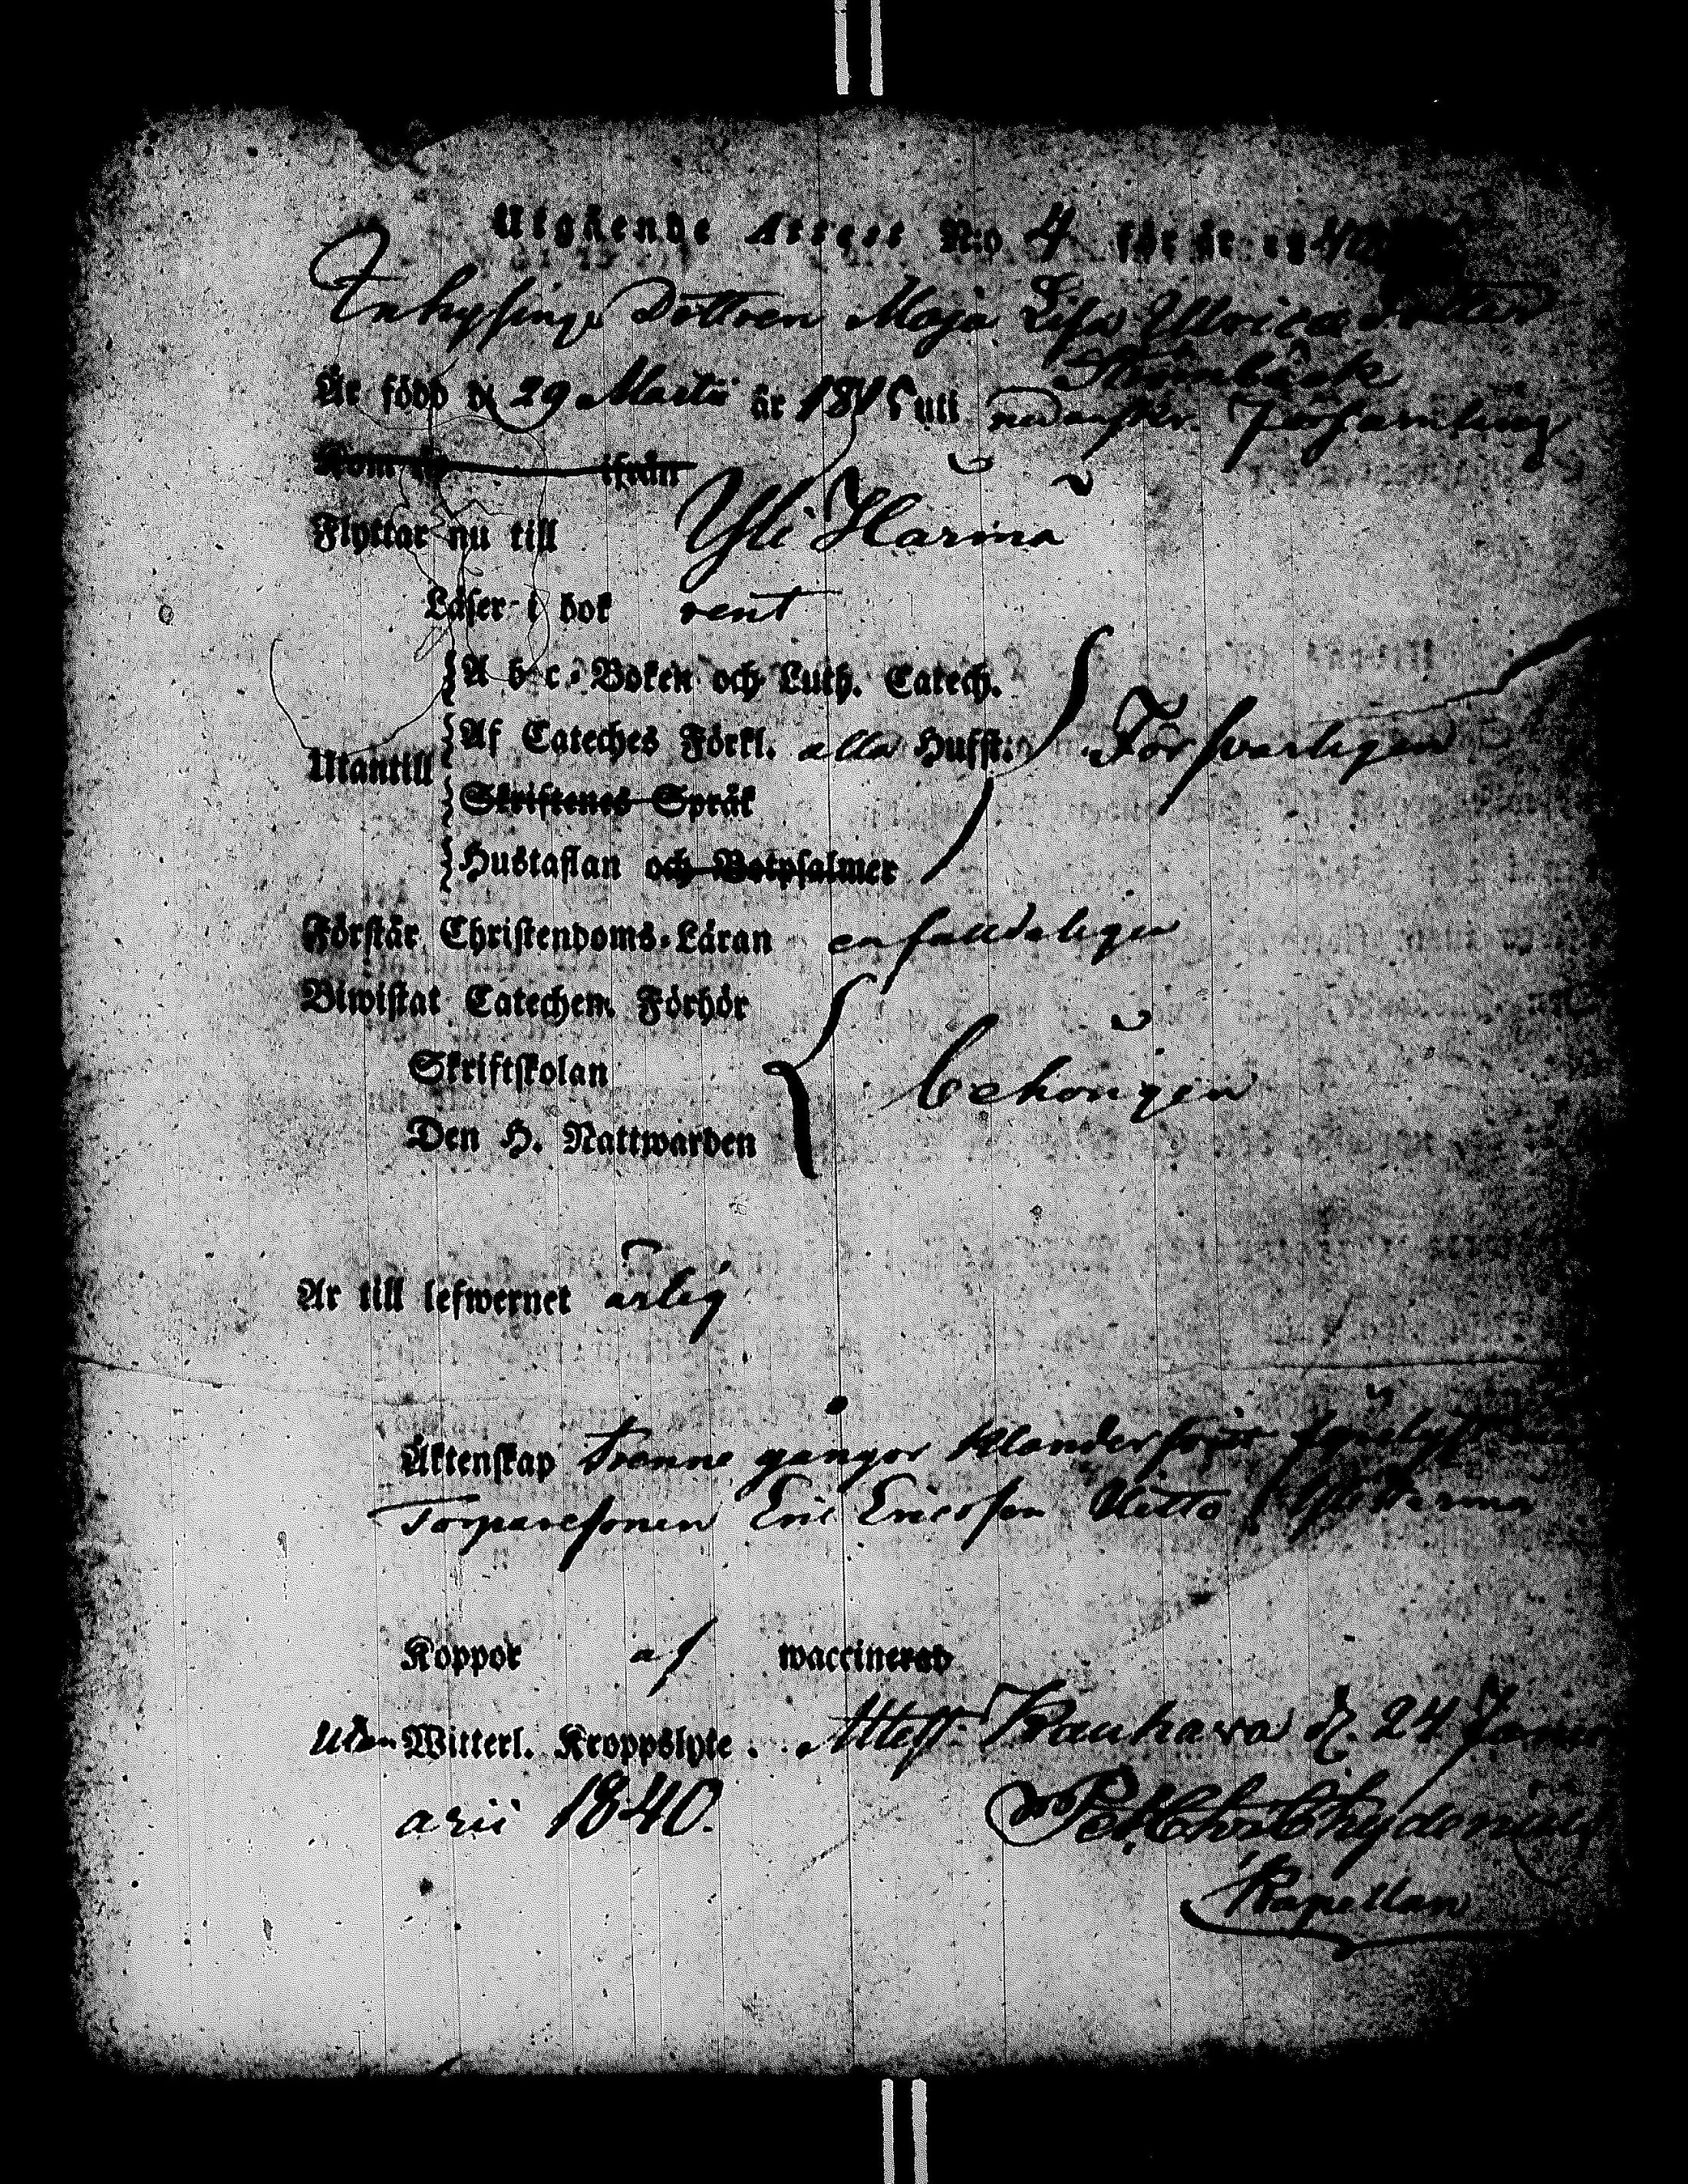 Utgående Attest N:o 4 för år 1840
Inhysings Dottren Maja Lisa Ulricadotter
Stenbäck
Är född d. 29 Martii år 1815 uti nedanskr. Församling
Kom hit ifrån
Flyttar nu till Yli Härmä
Läser i bok rent
A b c-Boken och Luth. Catech.
Af Cateches Förkl. alla Hufst: Försvarligen
Utantill
Skriftenes Språk
Hustaflan och Botpsalmer
Förstår Christendoms-Läran enfalldeligen
Biwistat Catechem. Förhör
Skriftskolan behörigen
Den H. Nattwarden
Är till lefwernet ärlig
Äktenskap trenne gångor klanderfritt
Torparesonen Eric Ericsson Yli Härmä
Koppor af waccinerad
Utan Witterl. Kroppslyte. Attest. Kauhava d. 24 Janu
arii 1840.
Pet. Chr. Chydenius
Kapellan